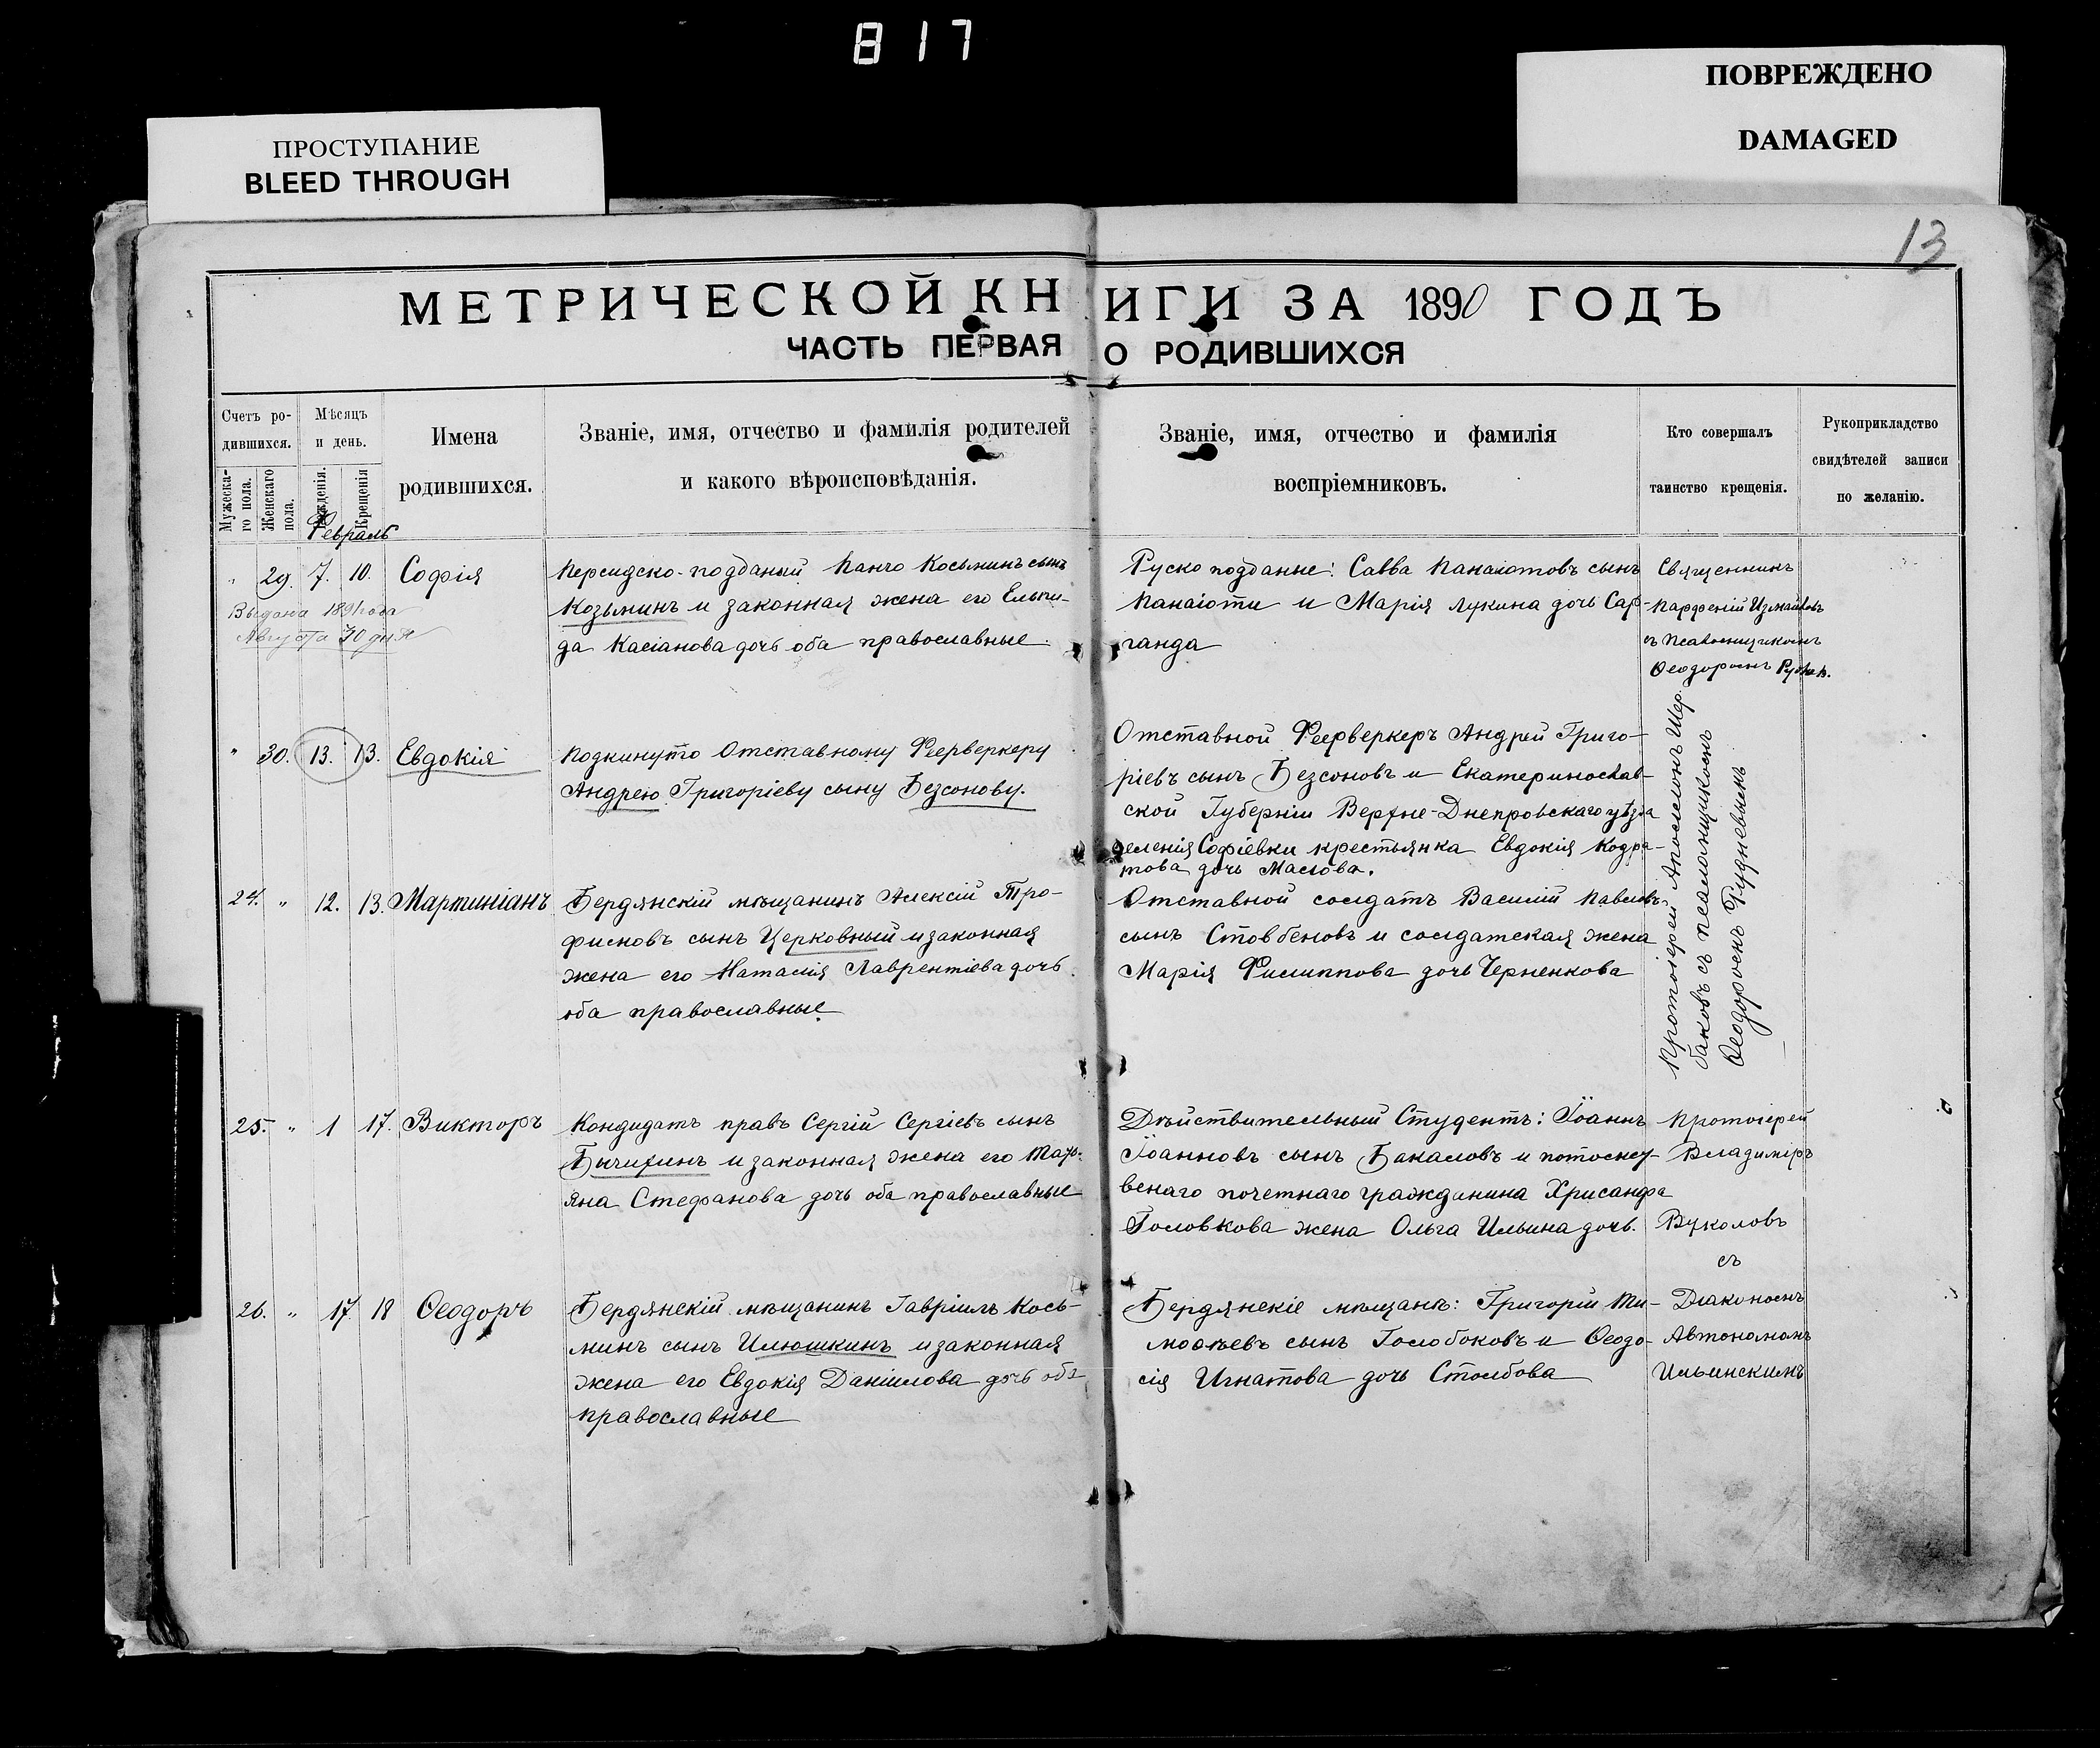 817
ПРОСТУПАНИЕ
BLEED THROUGH
ПОВРЕЖДЕНО
DAMAGED
13
МЕТРИЧЕСКОЙ КНИГИ ЗА 1890 ГОДЪ
ЧАСТЬ ПЕРВАЯ О РОДИВШИХСЯ
Счетъ ро-
дившихся.
Мужеска-
го пола.
Женскаго
пола.
Мѣсяцъ
и день.
Рожденія.
Крещенія
Имена
родившихся.
Званіе, имя, отчество и фамилія родителей
и какого вѣроисповѣданія.
Званіе, имя, отчество и фамилія
воспріемниковъ.
Кто совершалъ
таинство крещенія.
Рукоприкладство
свидѣтелей записи
по желанію.
Февраль
" 29. 7. 10. Софія
Выдана 1891 года
Августа 30 дня
Персидско-подданый Панчо Косьминъ сынъ
Козьминъ и законная жена его Ельпи-
да Касіанова дочь оба православные
Руско подданые: Савва Панаіотовъ сынъ
Панаіоти и Марія Лукина дочь Сар-
ганда
Священникъ
Парфеній Измайловъ
съ Псаломщикомъ
Ѳеодоромъ Рудкев.
" 30. 13. 13. Евдокія
Подкинуто Отставному Феерверкеру
Андрею Григоріеву сыну Безсонову.
Отставной Феерверкеръ Андрей Григо-
ріевъ сынъ Безсоновъ и Екатеринослав-
ской Губерніи Верхне-Днепровскаго уѣзда
селенія Софіевки крестьянка Евдокія Кодра-
това дочь Маслова.
Протоіерей Аполлонъ Щер
баковъ съ псаломщикомъ
Ѳеодоромъ Рудневымъ
24. " 12. 13. Мартиніанъ
Бердянскій мѣщанинъ Алексій Тро-
фимовъ сынъ Церковный и законная
жена его Наталія Лаврентіева дочь
оба православные
Отставной солдатъ Василій Павловъ
сынъ Стовбеновъ и солдатская жена
Марія Филиппова дочь Черненкова
25. " 1 17. Викторъ
Кандидатъ правъ Сергій Сергіевъ сынъ
Бычихинъ и законная жена его Тать-
яна Стефанова дочь оба православные
Дѣйствительный Студентъ: Іоаннъ
Іоанновъ сынъ Бакаловъ и потомс-
венаго почетнаго гражданина Хрисанфа
Головкова жена Ольга Ильина дочь.
Протоіерей
Владиміръ
Вуколовъ
съ
26. " 17. 18 Ѳеодоръ
Бердянскій мѣщанинъ Гавріилъ Кось-
минъ сынъ Илюшкинъ и законная
жена его Евдокія Даніилова дочь оба
православные
Бердянскіе мѣщане: Григорій Ти-
моѳеевъ сынъ Голобоковъ и Ѳеодо-
сія Игнатова дочь Столбова
Діакономъ
Автономомъ
Ильинскимъ